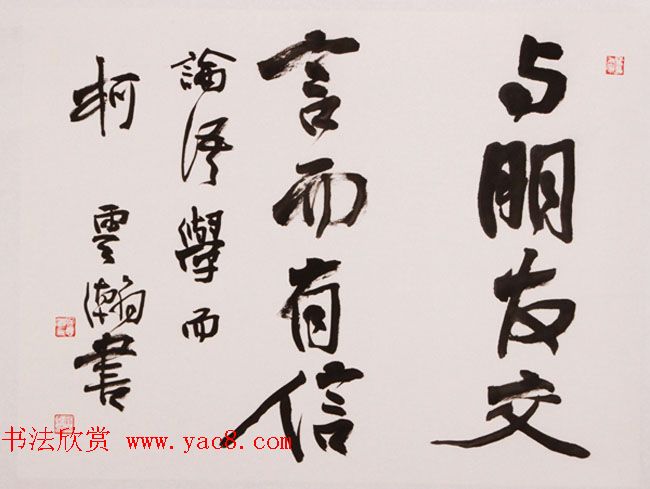 与朋友交
言而有信
論语學而
柯雲瀚書
书法欣赏 www.yac8.com